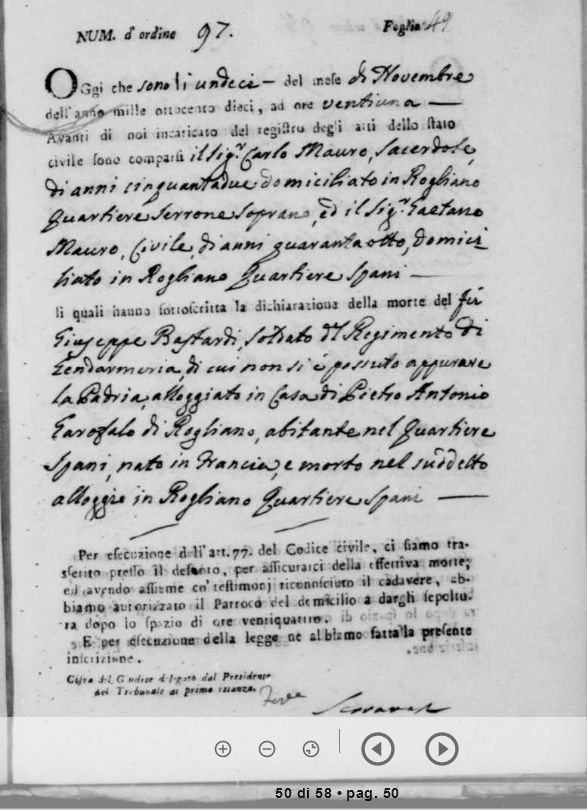 NUM. d'ordine 97. Foglio 49
OGgi che sono li undeci — del mese di Novembre
dell'anno mille ottocento dieci, ad ore ventiuna —
Avanti di noi incaricato del registro degli atti dello stato
civile sono comparsi il Sig.r Carlo Mauro, Sacerdote,
di anni cinquantadue domiciliato in Rogliano
Quartiere Serrone Soprano, ed il Sig.r Gaetano
Mauro, Civile, di anni quarantaotto, domici
liato in Rogliano Quartiere Spani —
li quali hanno sottoscritta la dichiarazione della morte del fu
Giuseppe Bastardi, soldato del Regimento di
Gendarmeria di cui non si è possuto appurare
la Padria, alloggiato in Casa di Pietro Antonio
Garofalo di Rogliano, abitante nel Quartiere
Spani, nato in Francia, e morto nel suddetto
alloggio in Rogliano Quartiere Spani —
Per esecuzione dell'art. 77. del Codice civile, ci siamo tra-
sferito presso il defonto, per assicurarci della effettiva morte;
ed avendo assieme co' testimonj riconosciuto il cadavere, ab-
biamo autorizzato il Parroco del domicilio a dargli sepoltu-
ra dopo lo spazio di ore ventiquattro.
E per esecuzione della legge ne abbiamo fatta la presente
inscrizione.
Cifra del Giudice delegato dal Presidente
del Tribunale di prima istanza.
50 di 58 • pag. 50